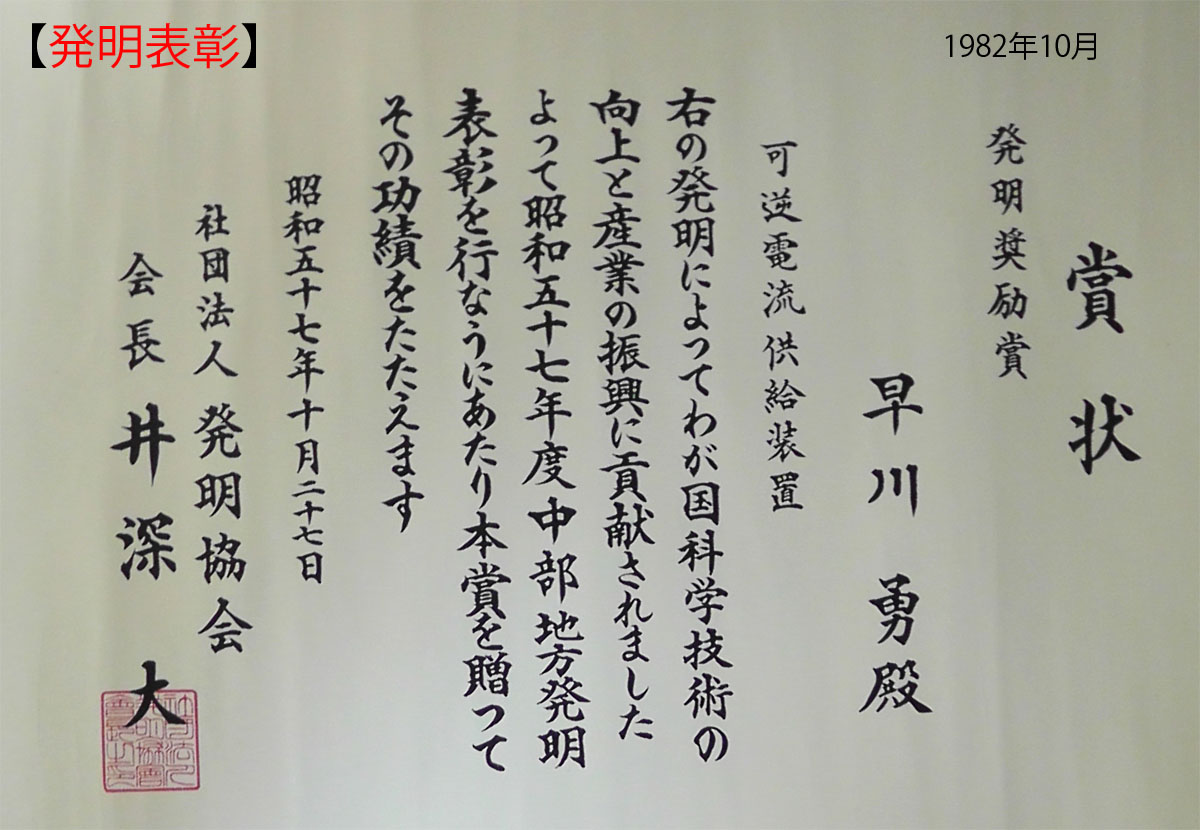 【発明表彰】
1982年10月
賞状
発明奨励賞
早川勇殿
可逆電流供給装置
右の発明によってわが国科学技術の
向上と産業の振興に貢献されました
よって昭和五十七年度中部地方発明
表彰を行なうにあたり本賞を贈って
その功績をたたえます
昭和五十七年十月二十七日
社団法人発明協会
会長井深大